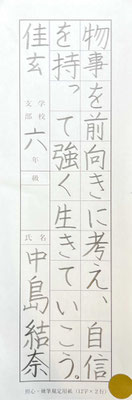 物事を前向きに考え、自信
を持って強く生きていこう。
佳玄
学校
支部
六年
級
氏名
中島結奈
初心・硬筆規定用紙（12字×2行）